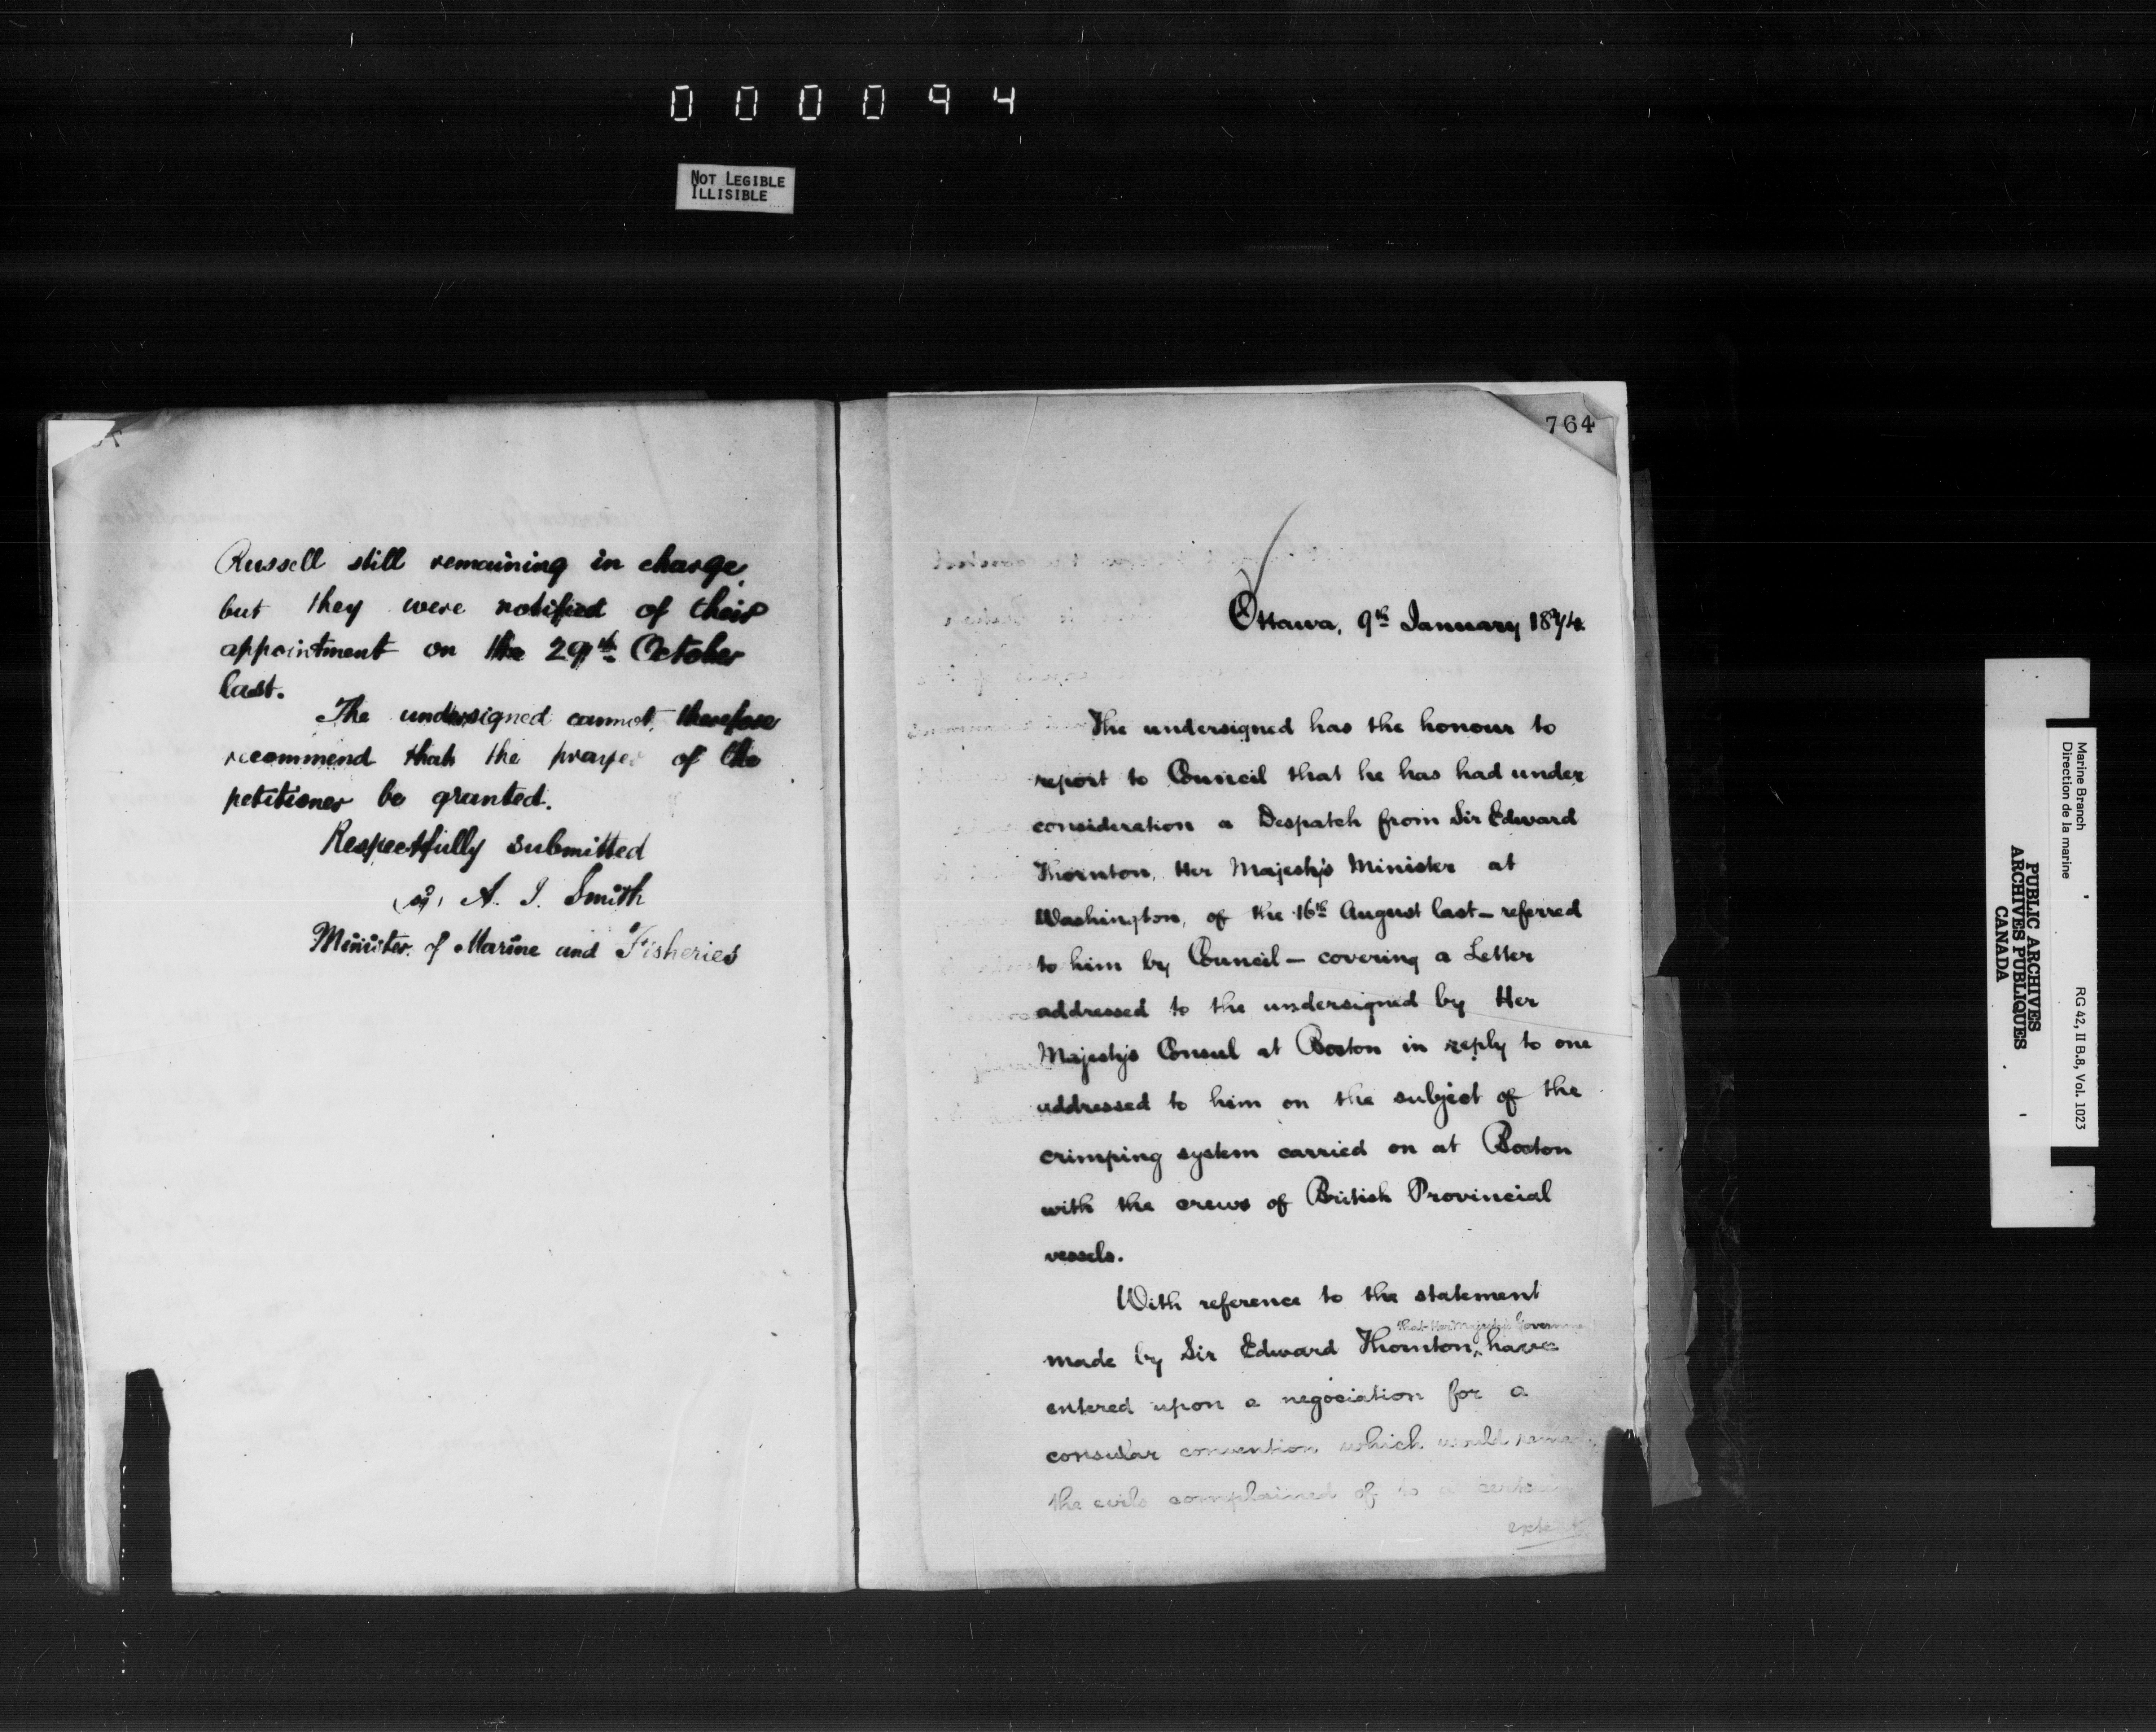 000094
NOT LEGIBLE
ILLISIBLE
Russell still remaining in charge,
but they were notified of their
appointment on the 29th October
last.
The undersigned cannot, therefore
recommend that the prayer of the
petitioner be granted.
Respectfully submitted
A. J. Smith
Minister of Marine and Fisheries
764
Ottawa, 9th January 1874
The undersigned has the honour to
report to Council that he has had under
consideration a Despatch from Sir Edward
Thornton, Her Majesty's Minister at
Washington, of the 16th August last – referred
to him by Council – covering a Letter
addressed to the undersigned by Her
Majesty's Consul at Boston in reply to one
addressed to him on the subject of the
crimping system carried on at Boston
with the crews of British Provincial
vessels.
With reference to the statement
that Her Majesty's Governme
made by Sir Edward Thornton, have
entered upon a negociation for a
consular convention which would remedy
the evils complained of to a certain
extent
Marine Branch
Direction de la marine
RG 42, II B.8, Vol. 1023
PUBLIC ARCHIVES
ARCHIVES PUBLIQUES
CANADA